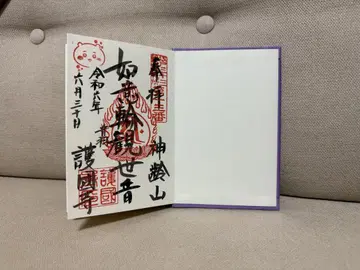 奉拝
神齢山
如意輪観世音
令和六年
六月三十日
護國寺